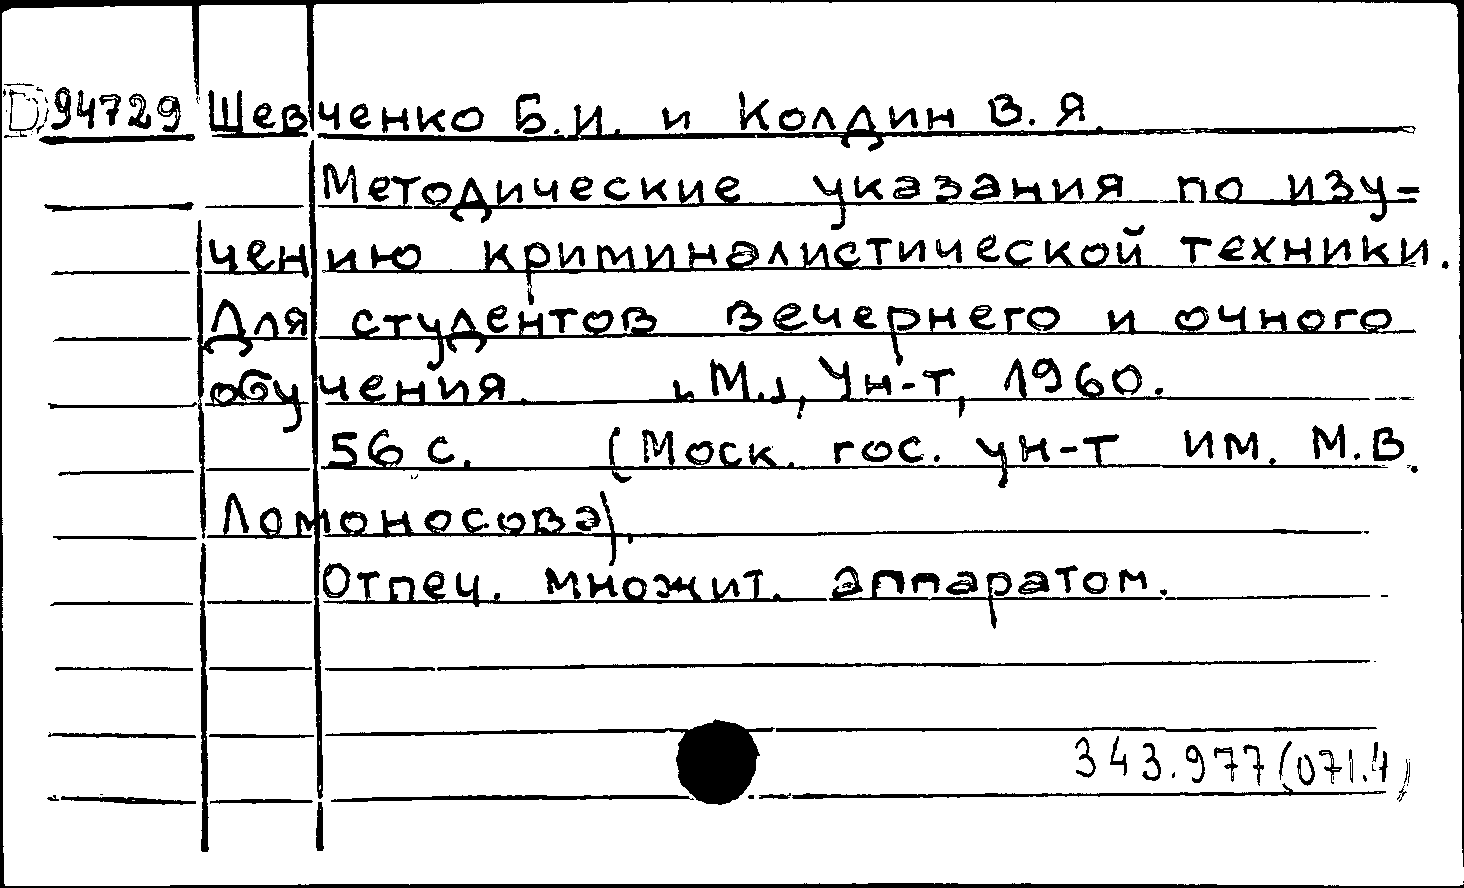 D94729 Шевченко Б.И. и Колдин В.Я.
Методические указания по изу=
чению криминалистической техники.
Для студентов вечернего и очного
обучения. [М.], Ун-т, 1960.
56 с. (Моск. гос. ун-т им. М.В.
Ломоносова).
Отпеч. множит. аппаратом.
343.977(071.4)